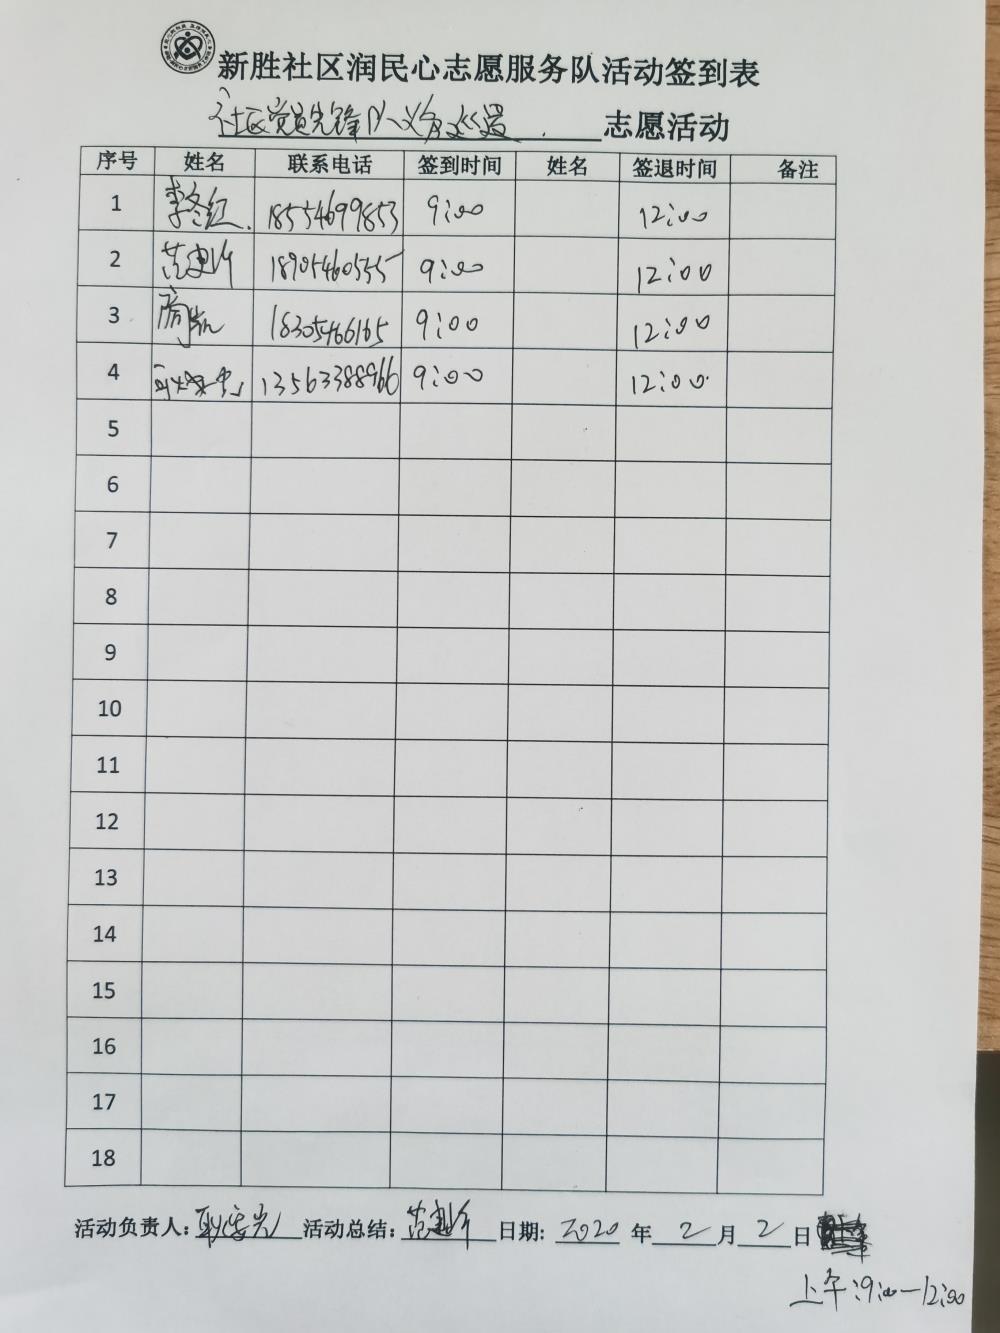 新胜社区润民心志愿服务队活动签到表
社区党员先锋队义务巡逻 志愿活动
序号 姓名 联系电话 签到时间 姓名 签退时间 备注
1 李冬红 18554699853 9:00 12:00
2 范建新 18905460535 9:00 12:00
3 18305466165 9:00 12:00
4 13563388966 9:00 12:00
5
6
7
8
9
10
11
12
13
14
15
16
17
18
活动负责人: 活动总结: 范建新 日期: 2020 年 2 月 2 日
上午:9:00—12:00